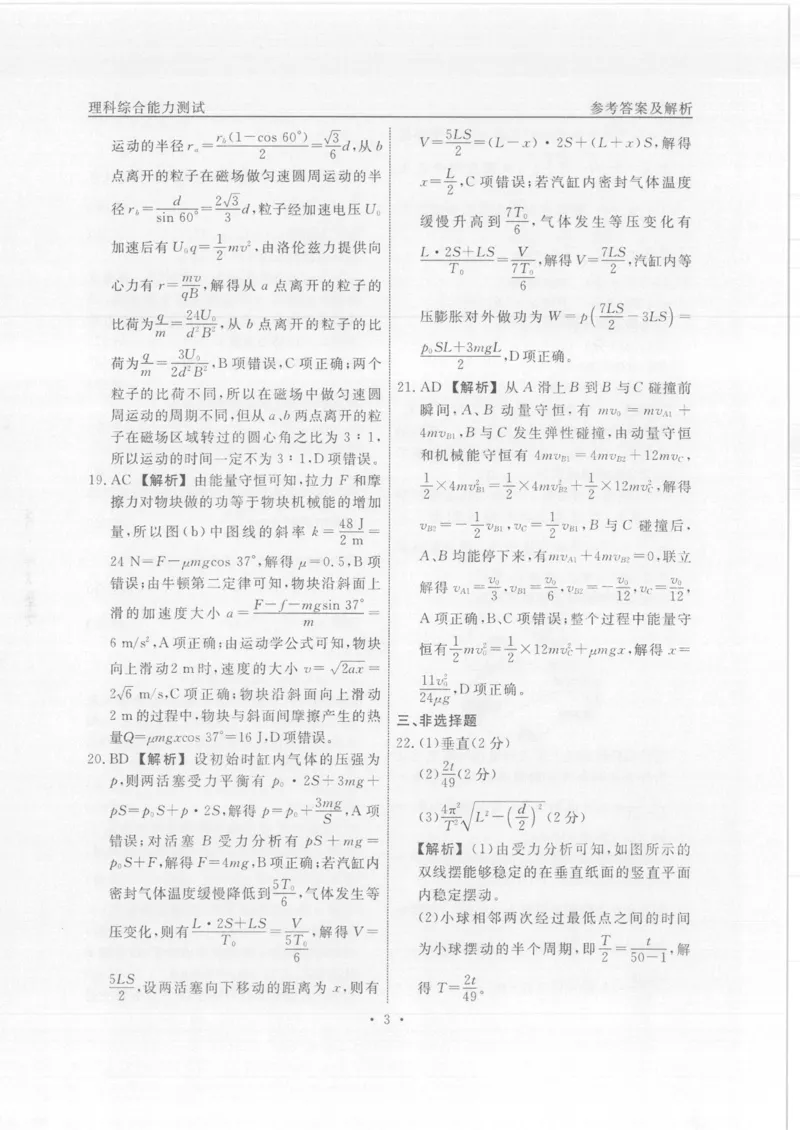 理科综合能力测试
参考答案及解析
运动的半径 rₐ=r_b(1-cos 60°)/2=√3/6 d,从 b
点离开的粒子在磁场做匀速圆周运动的半
径 r_b=d/sin 60°=2√3/3 d,粒子经加速电压 U₀
加速后有 U₀q=1/2 mv²,由洛伦兹力提供向
心力有 r=mv/qB,解得从 a 点离开的粒子的
比荷为 q/m=24U₀/d²B²,从 b 点离开的粒子的比
荷为 q/m=3U₀/2d²B²,B 项错误,C 项正确;两个
粒子的比荷不同,所以在磁场中做匀速圆
周运动的周期不同,但从 a、b 两点离开的粒
子在磁场区域转过的圆心角之比为 3∶1,
所以运动的时间一定不为 3∶1,D 项错误。
19. AC 【解析】 由能量守恒可知,拉力 F 和摩
擦力对物块做的功等于物块机械能的增加
量,所以图(b)中图线的斜率 k=48 J/2 m=
24 N=F-μmgcos 37°,解得 μ=0.5,B 项
错误;由牛顿第二定律可知,物块沿斜面上
滑的加速度大小 a=(F-f-mgsin 37°)/m=
6 m/s²,A 项正确;由运动学公式可知,物块
向上滑动 2 m 时,速度的大小 v=√(2ax)=
2√6 m/s,C 项正确;物块沿斜面向上滑动
2 m 的过程中,物块与斜面间摩擦产生的热
量Q=μmgxcos 37°=16 J,D项错误。
20. BD 【解析】 设初始时缸内气体的压强为
p,则两活塞受力平衡有 p₀·2S+3mg+
pS=p₀S+p·2S,解得 p=p₀+3mg/S,A 项
错误;对活塞 B 受力分析有 pS+mg=
p₀S+F,解得 F=4mg,B 项正确;若汽缸内
密封气体温度缓慢降低到 5T₀/6,气体发生等
压变化,则有 (L·2S+LS)/T₀=V/(5T₀/6),解得 V=
5LS/2,设两活塞向下移动的距离为 x,则有
V=5LS/2=(L-x)·2S+(L+x)S,解得
x=L/2,C 项错误;若汽缸内密封气体温度
缓慢升高到 7T₀/6,气体发生等压变化有
(L·2S+LS)/T₀=V/(7T₀/6),解得 V=7LS/2,汽缸内等
压膨胀对外做功为 W=p(7LS/2-3LS)=
(p₀SL+3mgL)/2,D 项正确。
21. AD 【解析】 从 A 滑上 B 到 B 与 C 碰撞前
瞬间,A、B 动量守恒,有 mv₀=mv_A1+
4mv_B1,B 与 C 发生弹性碰撞,由动量守恒
和机械能守恒有 4mv_B1=4mv_B2+12mv_C,
1/2×4mv²_B1=1/2×4mv²_B2+1/2×12mv²_C,解得
v_B2=-1/2 v_B1,v_C=1/2 v_B1,B 与 C 碰撞后,
A、B 均能停下来,有mv_A1+4mv_B2=0,联立
解得 v_A1=v₀/3、v_B1=v₀/6,v_B2=-v₀/12,v_C=v₀/12,
A 项正确,B、C 项错误;整个过程中能量守
恒有 1/2 mv₀²=1/2×12mv²_C+μmgx,解得 x=
11v₀²/24μg,D 项正确。
三、非选择题
22. (1)垂直(2 分)
(2)2t/49(2 分)
(3)4π²/T² √(L²-(d/2)²)(2 分)
【解析】 (1)由受力分析可知,如图所示的
双线摆能够稳定的在垂直纸面的竖直平面
内稳定摆动。
(2)小球相邻两次经过最低点之间的时间
为小球摆动的半个周期,即 T/2=t/(50-1),解
得 T=2t/49。
• 3 •